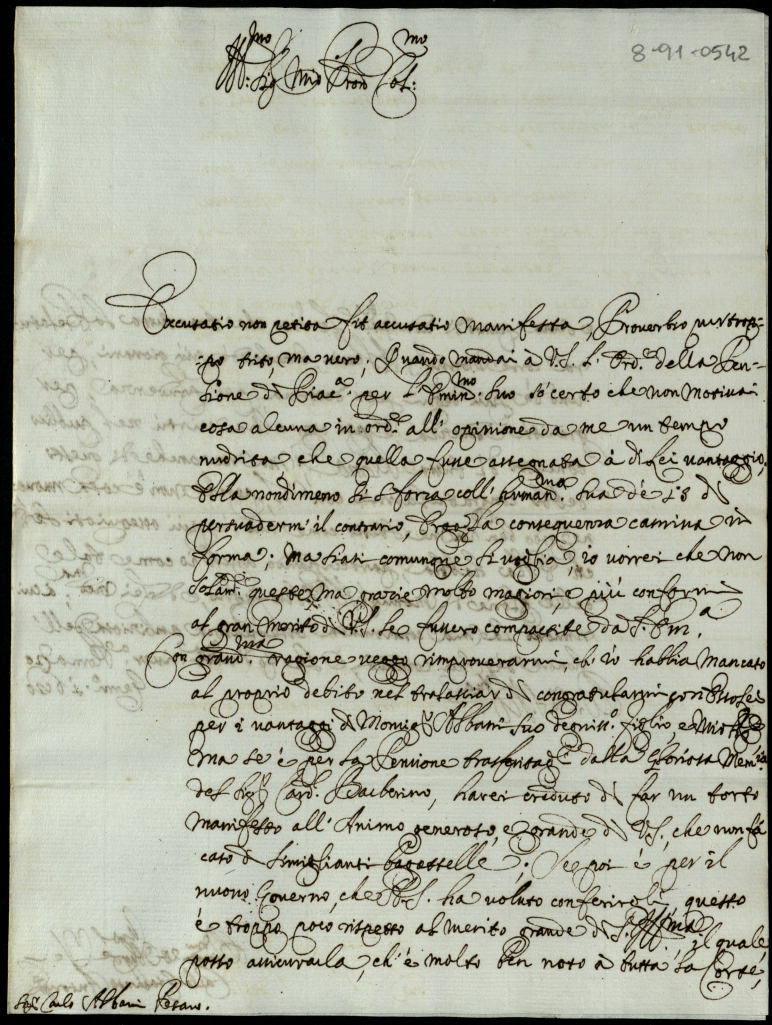 8-91-0542
Ill.mo Sig.r mio Pron Col.mo
Excusatio non petita fit accusatio manifesta, Proverbio purtrop-
-po trito, ma vero; Quando mandai à V.S. l'Ord.e della Pen-
sione di Piac.a per l'Emin.mo suo so certo che non motivai
cosa alcuna in ord.e all'opinione da me un tempo
nudrita che quella fusse assegnata à di Lei vantaggio,
Ella nondimeno si sforza coll'human.ma sua de 18 di
persuadermi il contrario, Ergo la consequenza camina in
forma; ma siasi comunque si voglia, io vorrei che non
solam.e queste ma grazie molto magiori, e più conformi
al gran merito di V.S. le fussero compartite da S. Em.a
Con grand.ma ragione veggo rimproverarmi, ch'io habbia mancato
al proprio debito nel tralasciar di congratularmi con Esso Lei
per i vantaggi di Monsig.r Albani suo degniss.o figlio, e mio
ma se è per la Pensione trasferita dalla Gloriosa Mem.ia
del Sig.r Card. Barberino, harei creduto di far un torto
manifesto all'Animo generoso, e grande di V.S., che non fà
caso di simiglianti bagattelle; Se poi è per il
nuovo Governo, che N.S. ha voluto conferirgli, questo
è troppo poco rispetto al merito grande di S. Ill.ma, il quale
posso assicurarla, ch'è molto ben noto à tutta la Corte,
Sig.r Carlo Albani Pesaro.